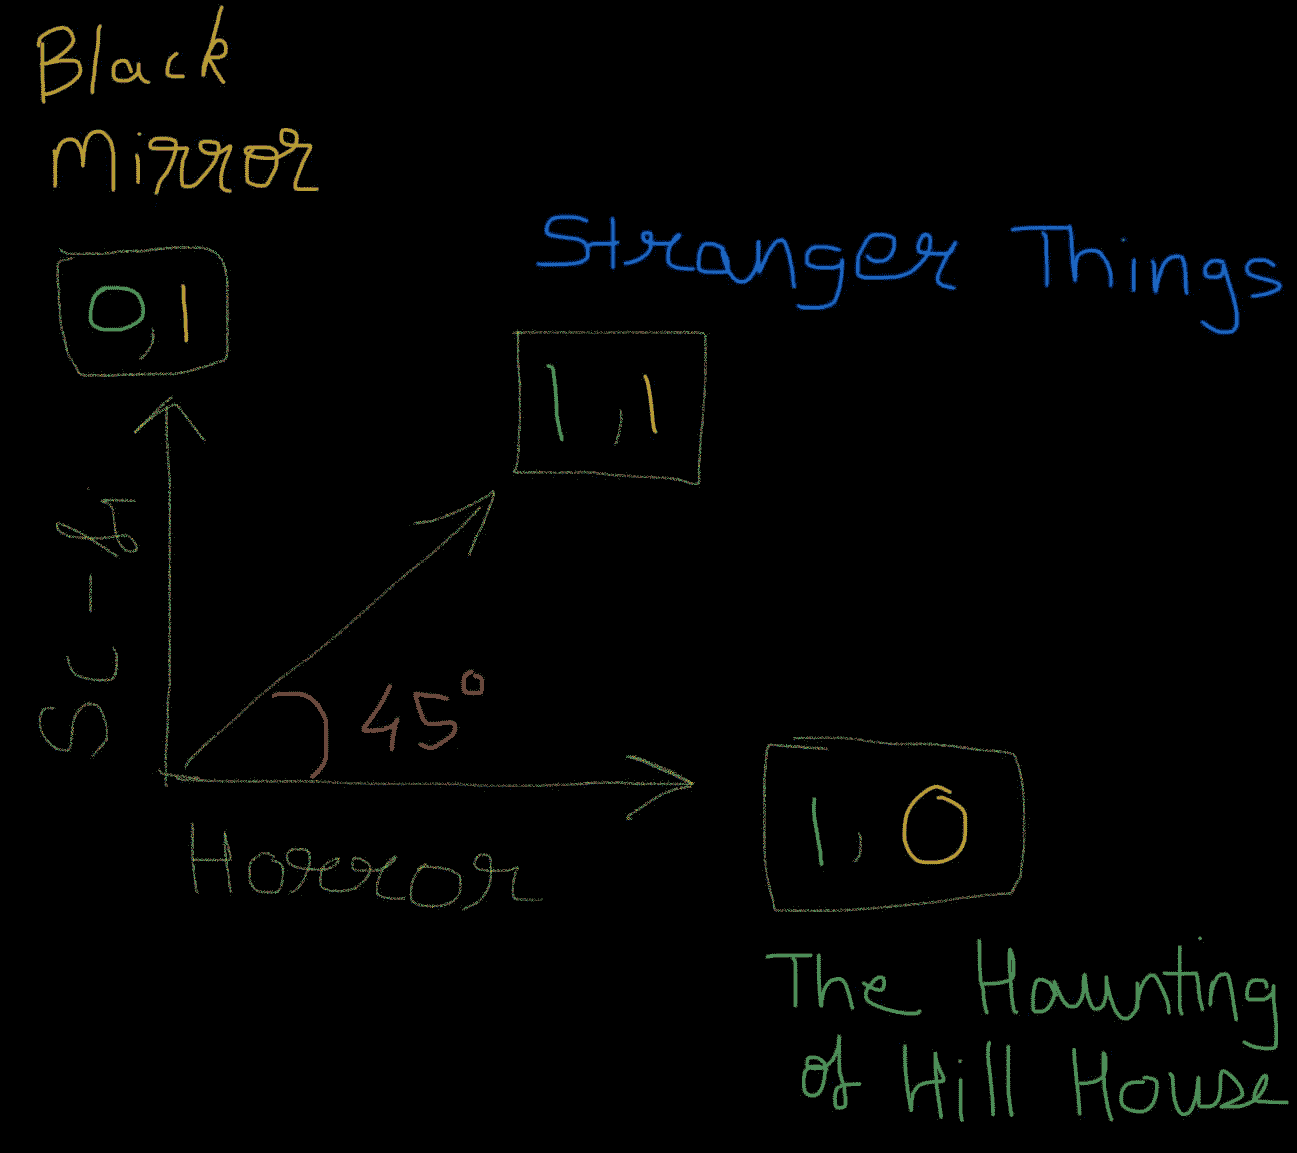 Black
Mirror
Stranger Things
0,1
1,1
Sci-fi
45°
Horror
1,0
The Haunting
of Hill House